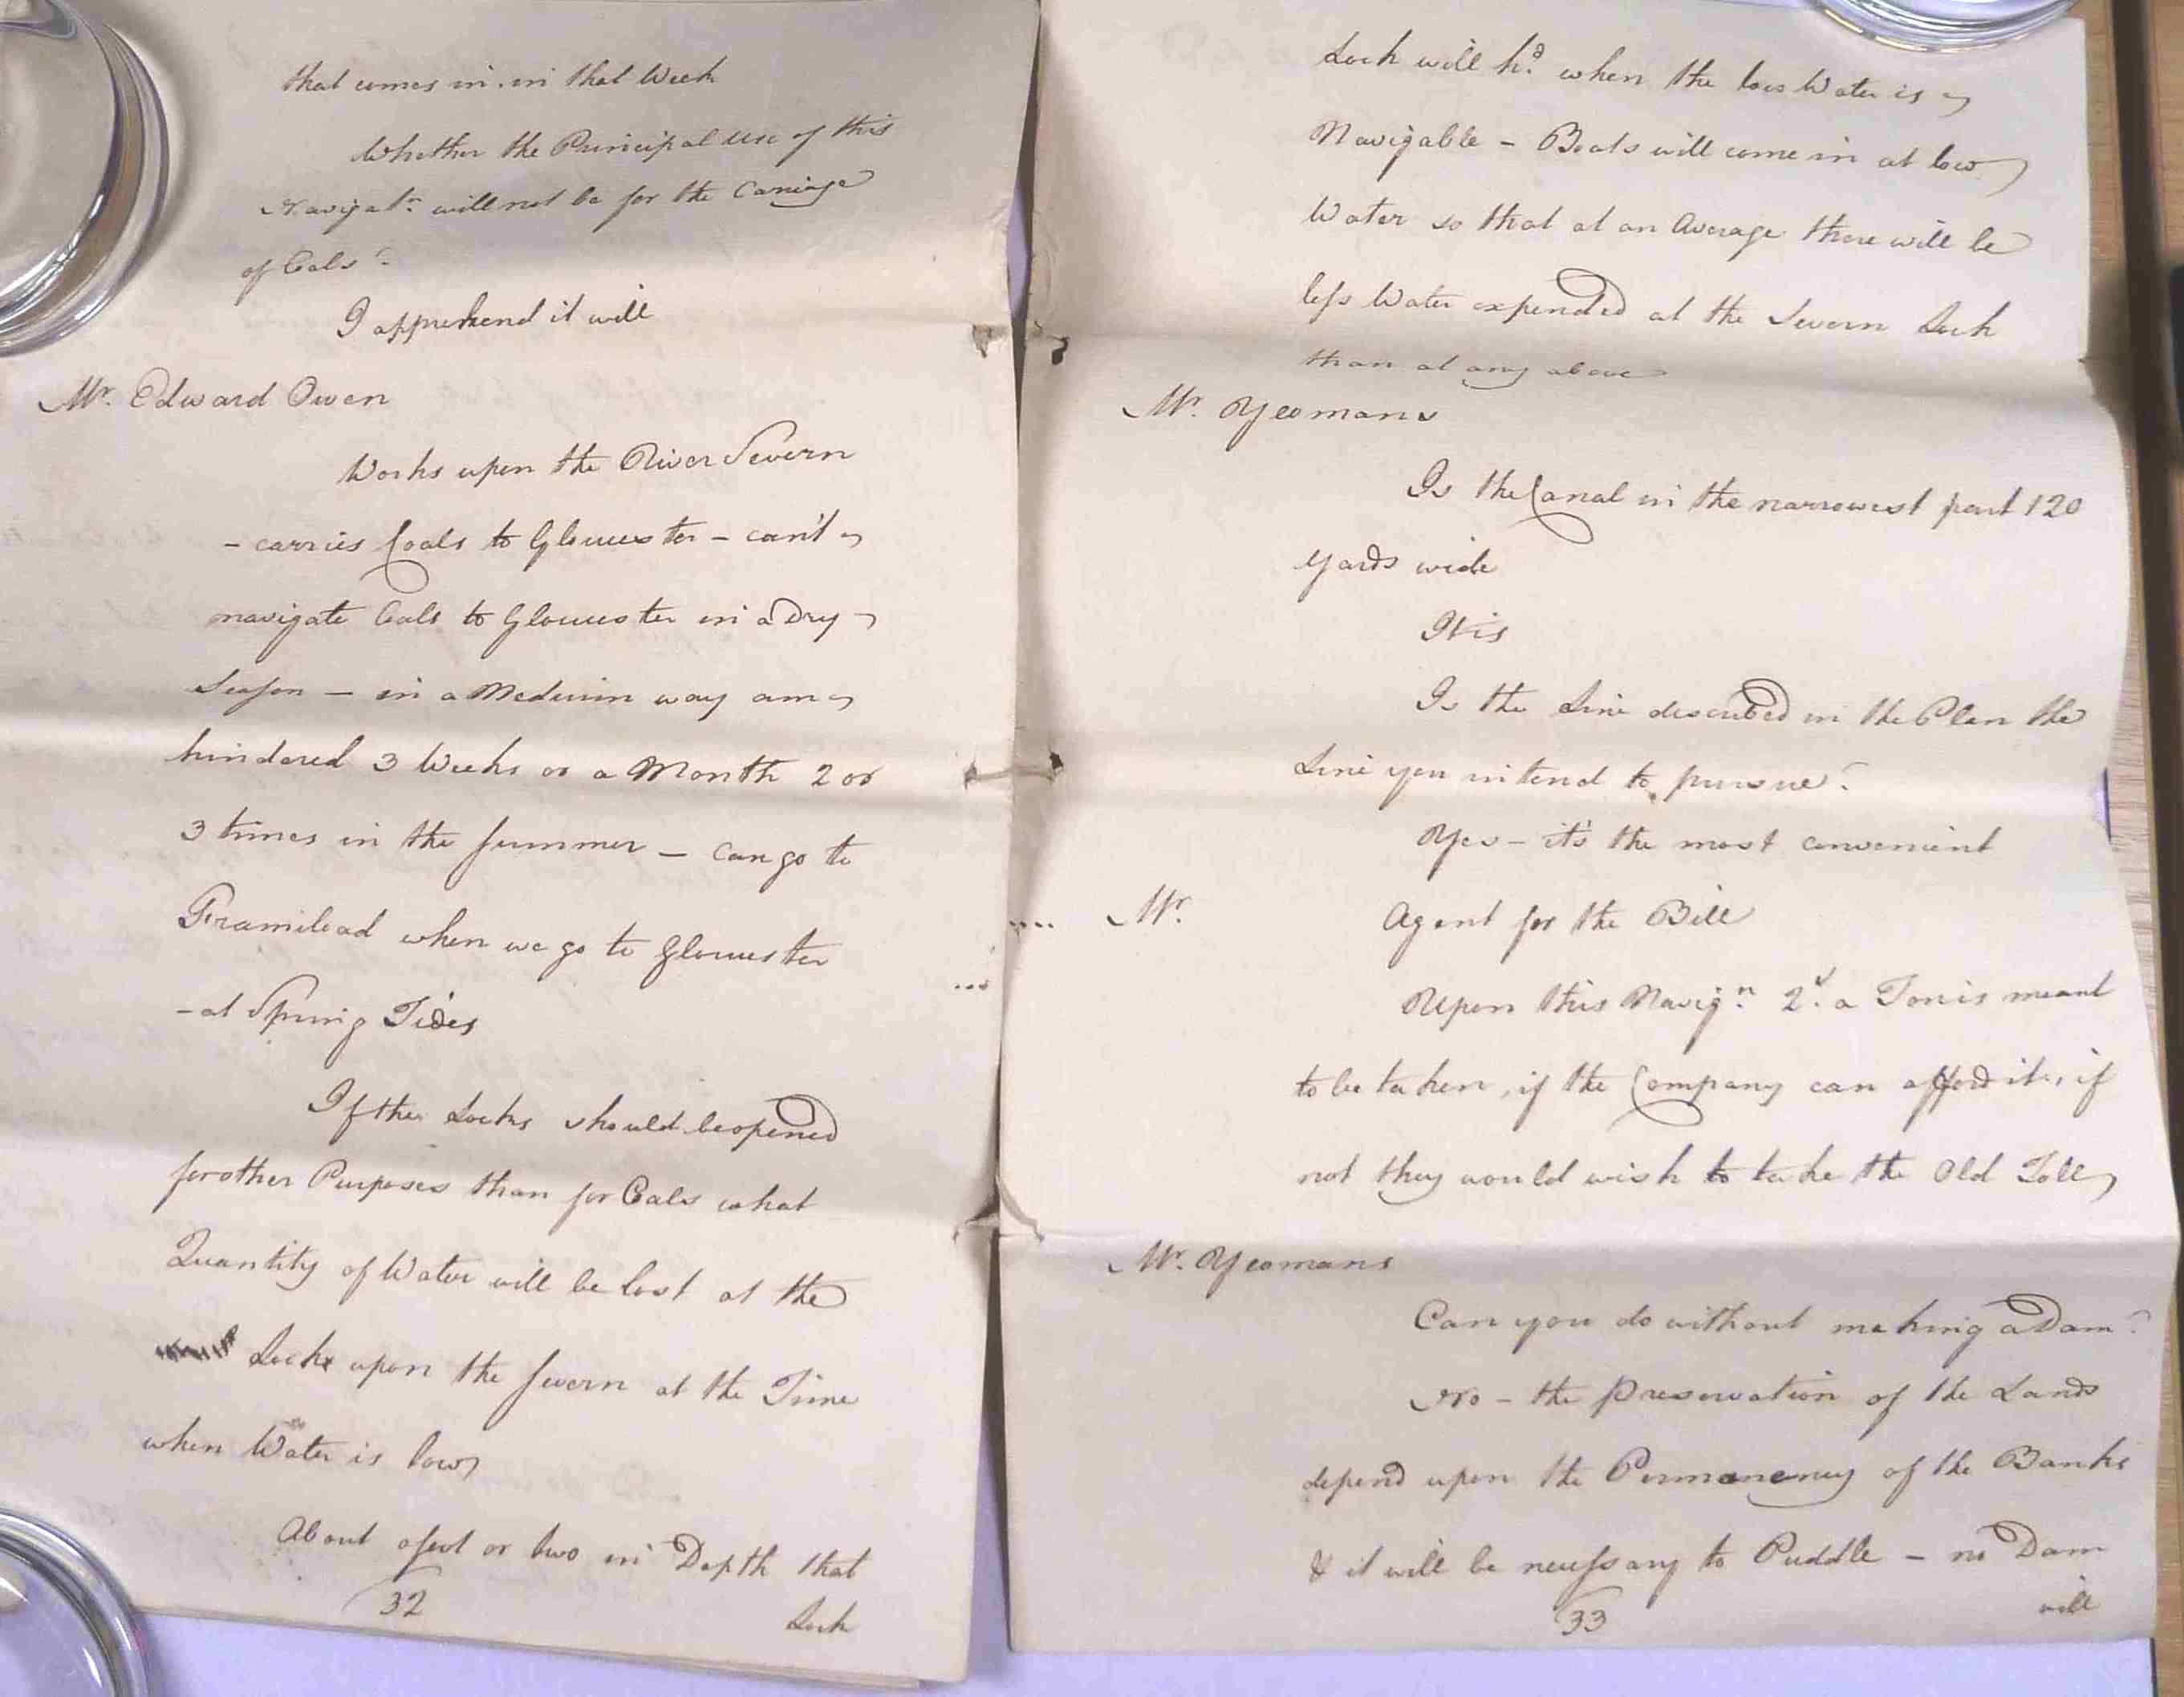 that comes in in that Week
Whether the Principal use of this
Navigatn. will not be for the Carriage
of Coals?
I apprehend it will
Mr. Edward Owen
Works upon the River Severn
- carries Coals to Gloucester - can't
navigate Coals to Gloucester in a Dry
Season - in a Medium way am
hindered 3 Weeks or a Month 2 or
3 times in the Summer - can go to
Framiload when we go to Gloucester
- at Spring Tides
If the Locks should be opened
for other Purposes than for Coals what
Quantity of Water will be lost at the
Lock upon the Severn at the Time
when Water is low
About a foot or two in Depth that
32
Lock
Lock will hd. when the low Water is
Navigable - Boats will come in at low
Water so that at an Average there will be
less Water expended at the Severn Lock
than at any above
Mr. Yeomans
Is the Canal in the narrowest part 120
yards wide
It is
Is the Line described in the Plan the
Line you intend to pursue?
Yes - it's the most convenient
Mr. Agent for the Bill
Upon this Navign. 2d. a Ton is meant
to be taken, if the Company can afford it, if
not they would wish to take the Old Toll
Mr. Yeomans
Can you do without making a Dam?
No - the preservation of the Lands
depend upon the Permanency of the Banks
& it will be necessary to Puddle - no Dam
33
will